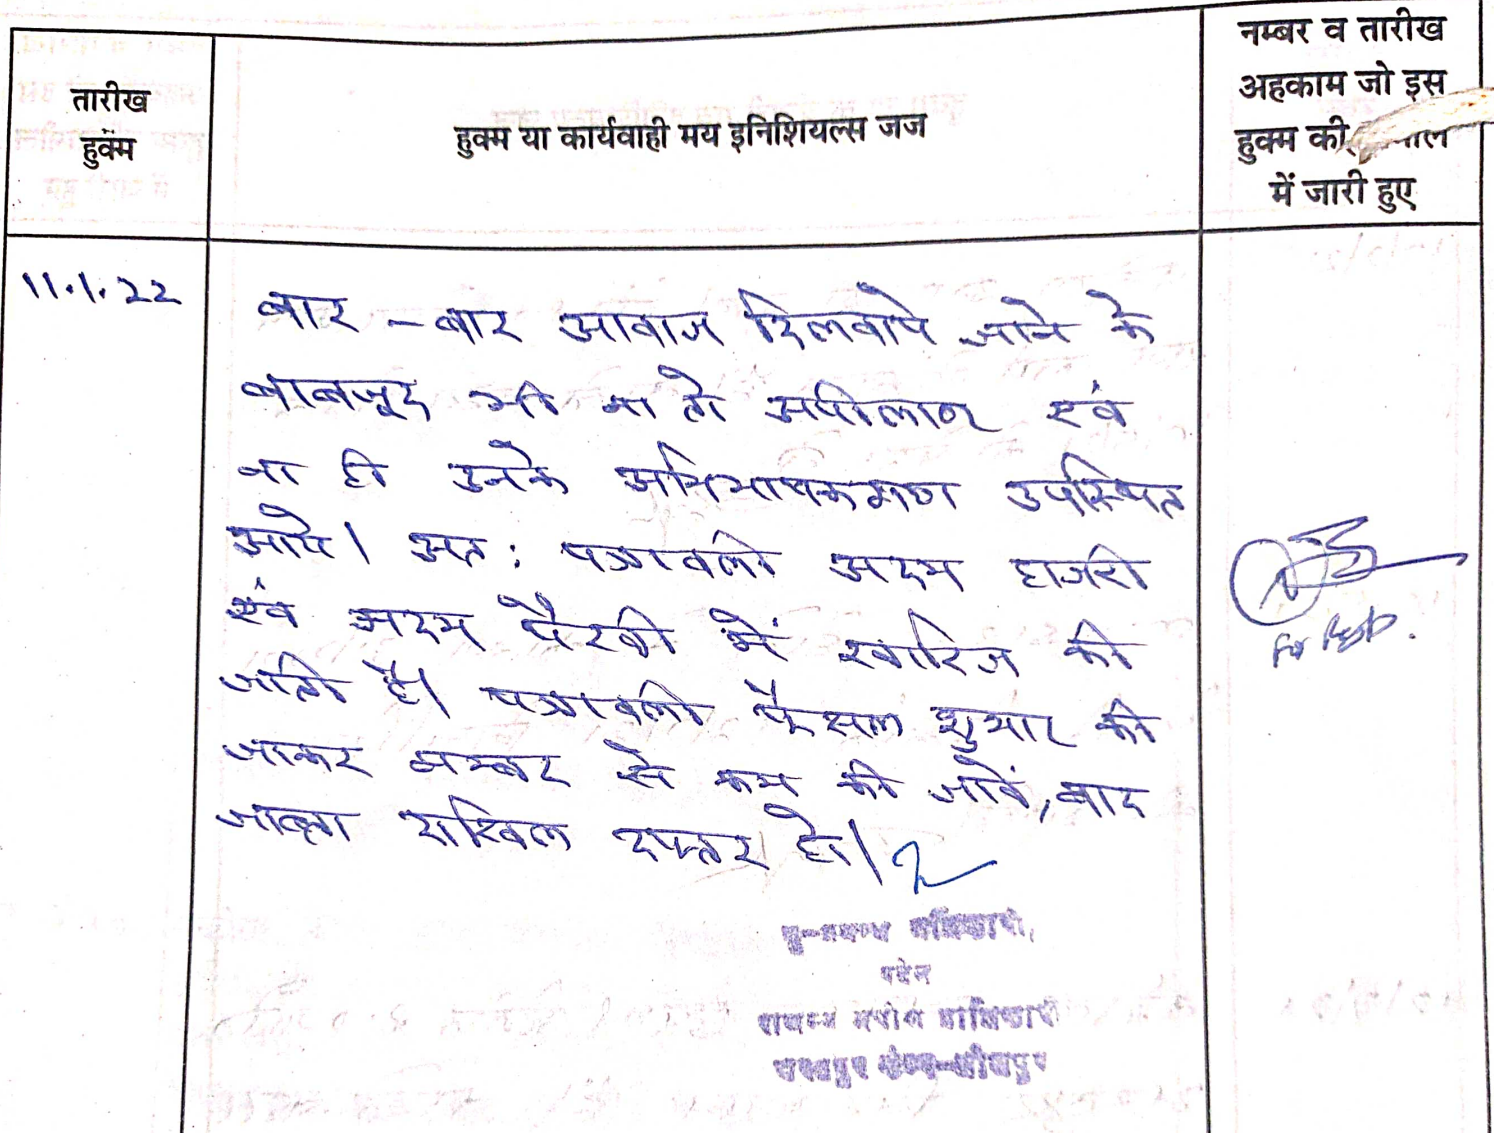 तारीख
हुक्म
हुक्म या कार्यवाही मय इनिशियल्स जज
नम्बर व तारीख
अहकाम जो इस
हुक्म की
में जारी हुए
11.1.22
बार - बार आवाज दिलवाये जाने के
बाबजूद भी ना तो अपीलान्ट एवं
ना ही उनके अभिभाषकगण उपस्थित
आये। अत: पत्रावली अदम हाजरी
एवं अदम पैरवी में खारिज की
जाती है। पत्रावली फैसल शुमार की
जाकर नम्बर से कम की जावें, बाद
जाब्ता दाखिल दफ्तर हो।
भू-प्रबन्ध अधिकारी,
पदेन
राजस्व अपील अधिकारी